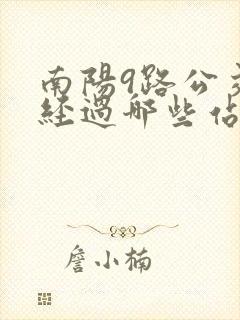 南陽9路公交
經過哪些佔
詹小楠